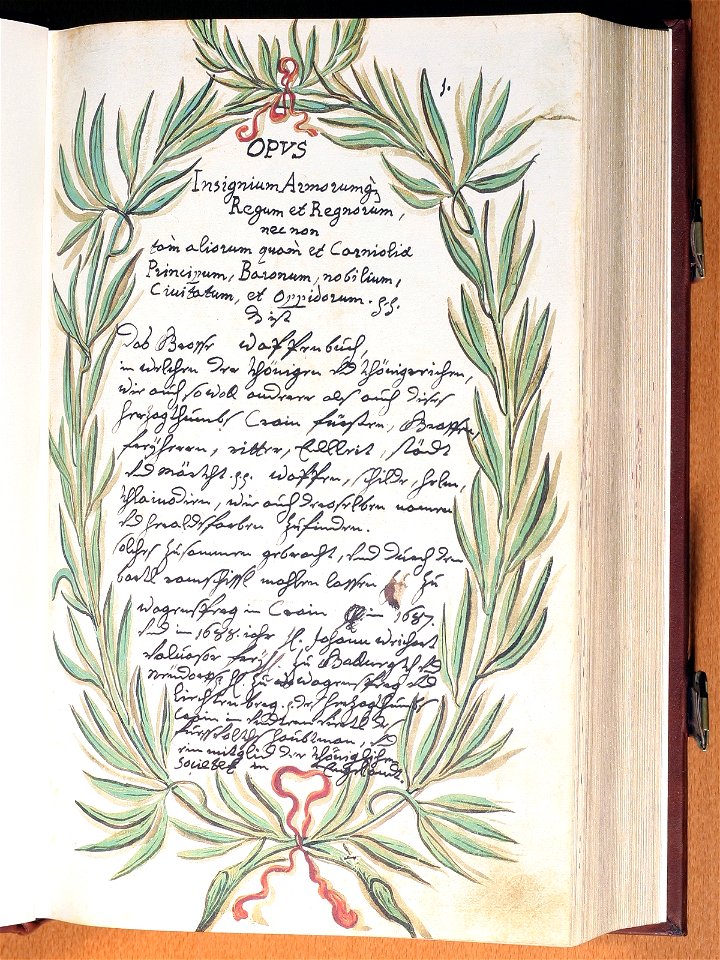 1.
OPVS
Insignium Armorumq̀ʒ
Regum et Regnorum,
nec non
tàm aliorum quam̀ et Carnioliæ
Principum, Baronum, nobilium,
Civitatum, et Oppidorum.
Dist
Das Grosse Waffenbuch,
in welchen der Khönigen Vnd Khönigreichen,
wie auch sowoll anderer als auch dises
Herzogthumbs Crain fürsten, Graffen,
freyherrn, ritter, Edlleit, Städt
Vnd Märckht waffen, schildt, helm,
Khlainodien, wie auch deroselben namen
Vnd heraldsfarben Zufinden.
solches Zusammen gebracht, Vnd durch den
mahlen lassen Zu
wagensperg in Crain im 1687.
Vnd im 1688. iahr Johann weichart
Valuasor freyh. Zu Vnd
Zu wagensperg Vnd
des Herzogthumbs
Crain in
haubtman, Vnd
ein mitglid der Khöniglichen
Societet in Engelandt.